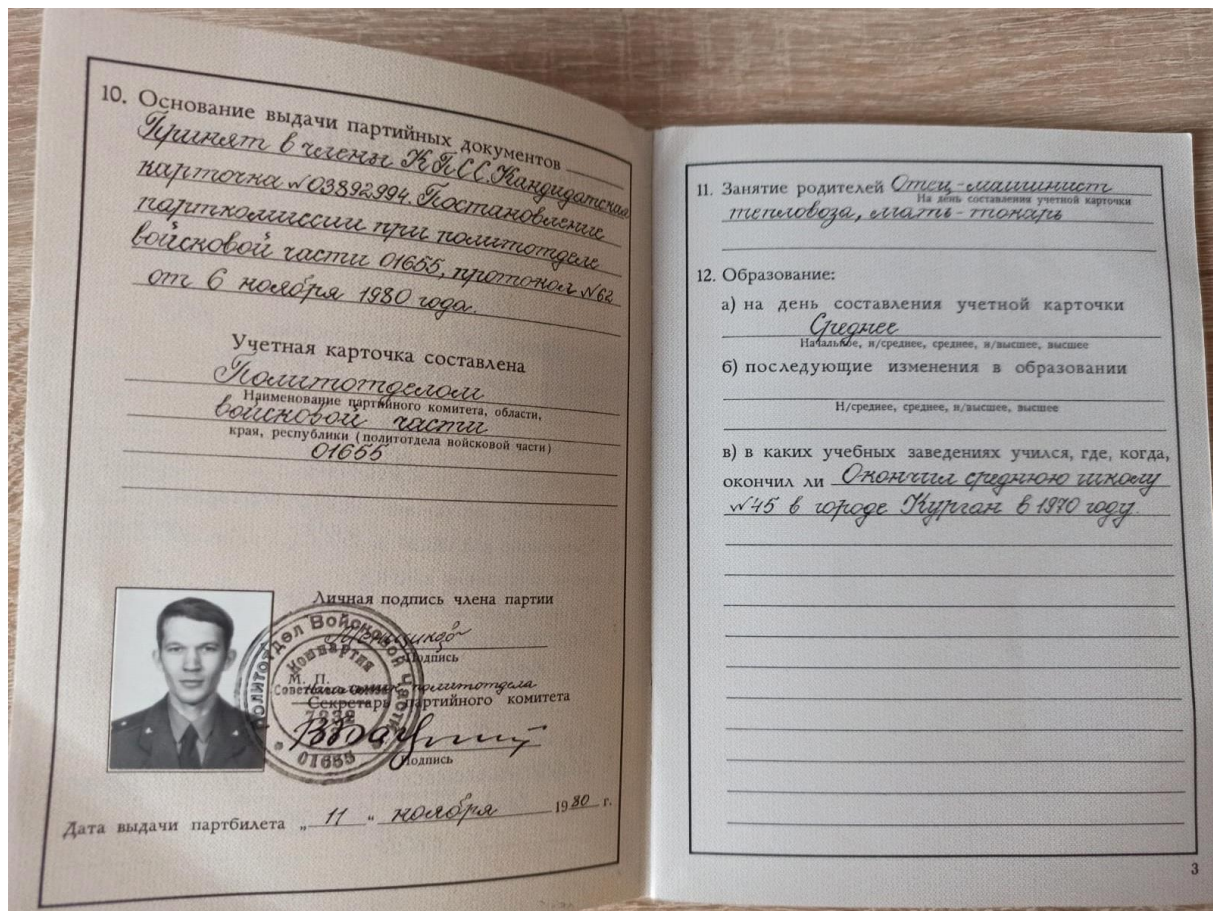 10. Основание выдачи партийных документов
Принят в члены КПСС. Кандидатская
карточка №03892994. Постановление
парткомиссии при политотделе
войсковой части 01655, протокол №62
от 6 ноября 1980 года.
Учетная карточка составлена
Политотделом
Наименование партийного комитета, области,
войсковой части
края, республики (политотдела войсковой части)
01655
Личная подпись члена партии
Подпись
М. П.
политотдела
Секретарь партийного комитета
Подпись
Политотдел Войсковой Части
Компартия
Советского Союза
01655
Дата выдачи партбилета „ 11 “ ноября 1980 г.
11. Занятие родителей Отец-машинист
На день составления учетной карточки
тепловоза, мать-токарь
12. Образование:
а) на день составления учетной карточки
Среднее
Начальное, н/среднее, среднее, н/высшее, высшее
б) последующие изменения в образовании
Н/среднее, среднее, н/высшее, высшее
в) в каких учебных заведениях учился, где, когда,
окончил ли Окончил среднюю школу
№45 в городе Курган в 1970 году.
3